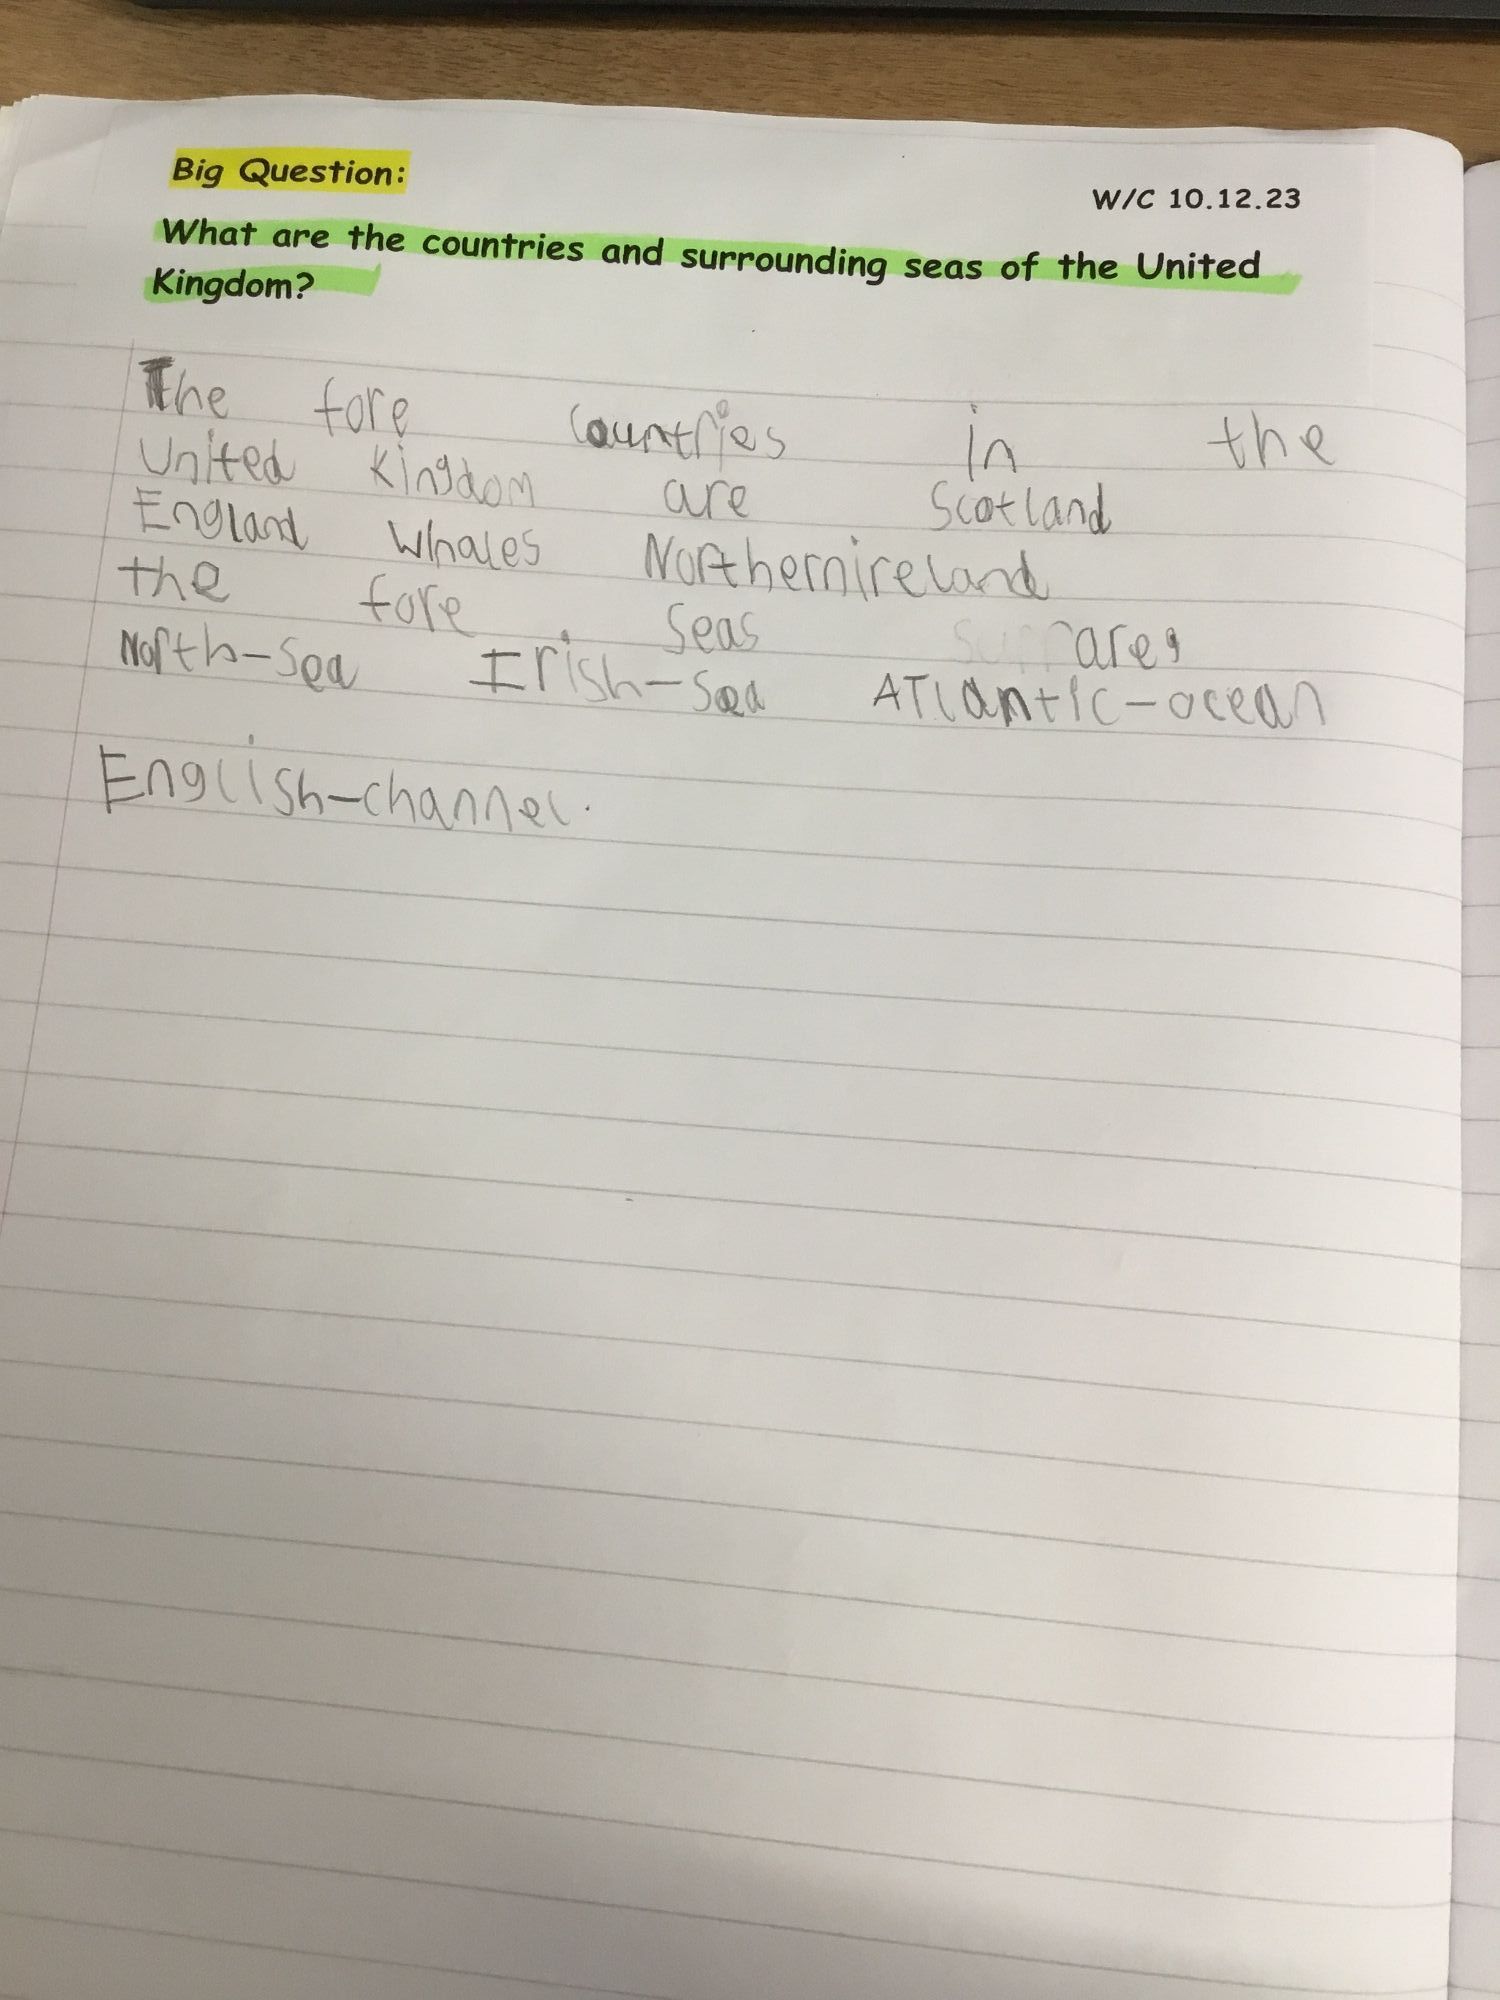 Big Question:
W/C 10.12.23
What are the countries and surrounding seas of the United
Kingdom?
The fore countries in the
United Kingdom are Scotland
England Whales Northernireland
the fore seas are,
North-Sea Irish-Sea ATlantic-ocean
English-channel.